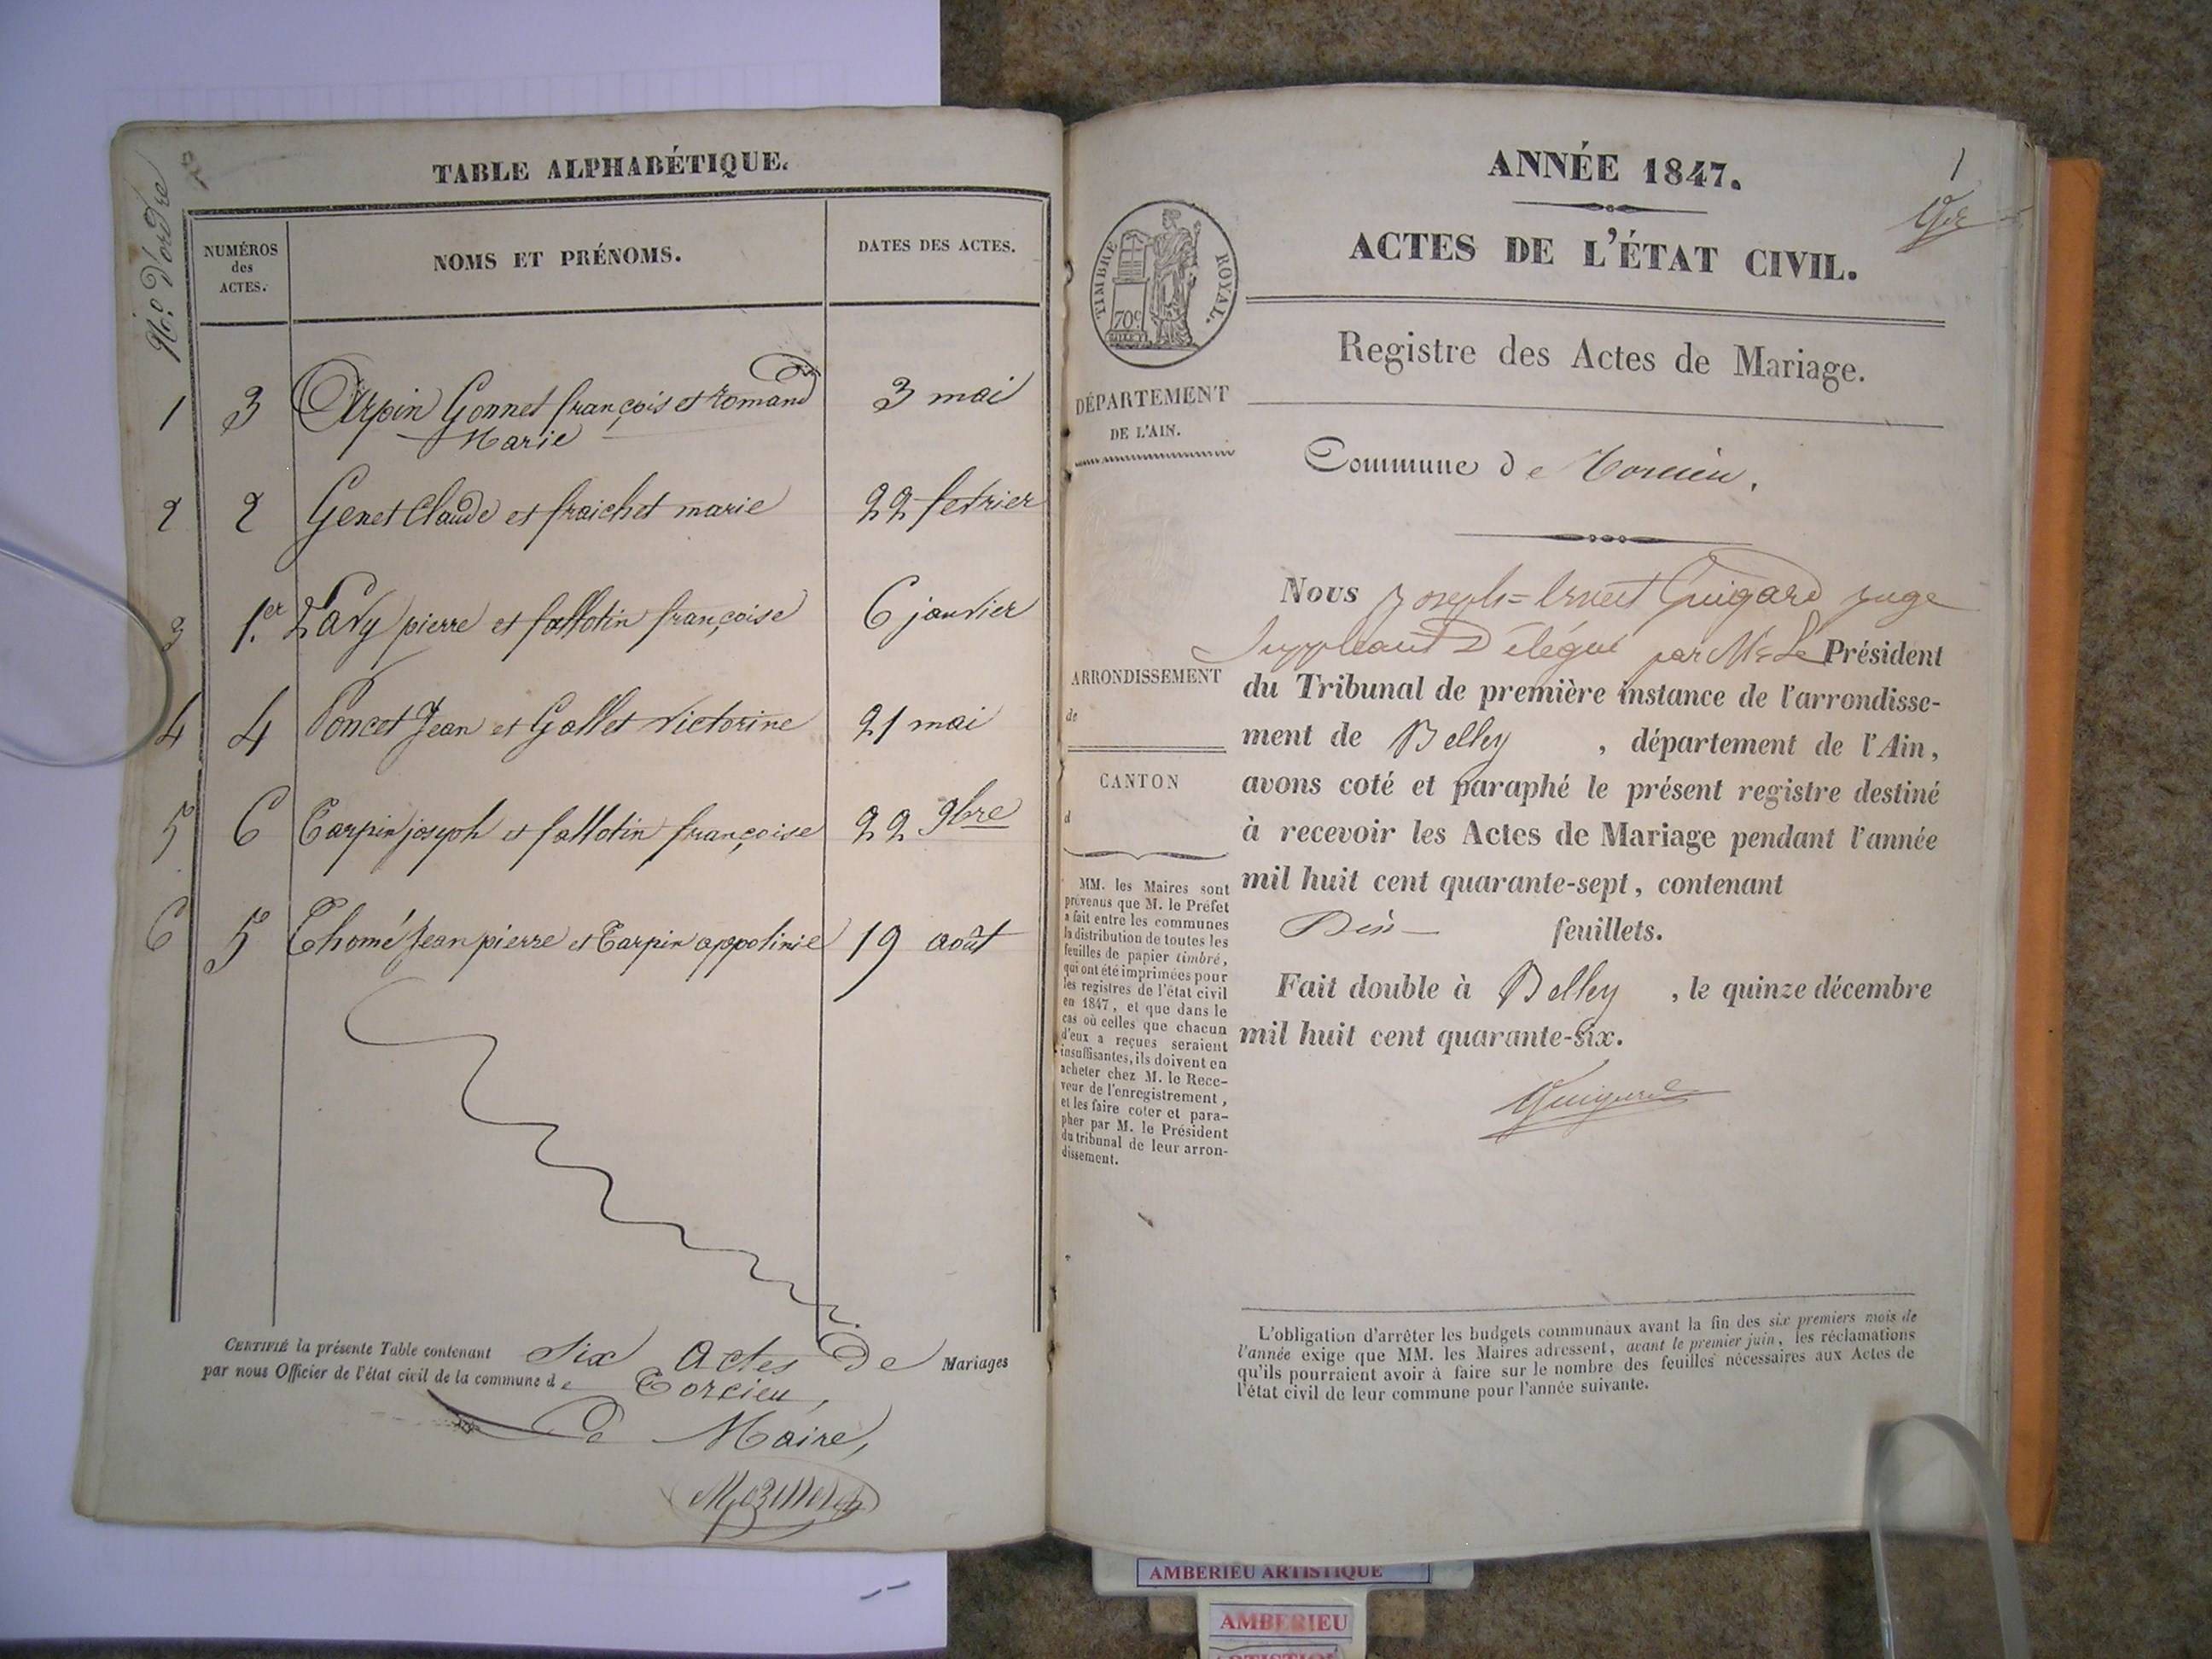 TABLE ALPHABÉTIQUE.
No. d'ordre
NUMÉROS
des
ACTES.
NOMS ET PRÉNOMS.
DATES DES ACTES.
1 3 Arpin Gonnet françois et romand 3 mai
Marie
2 2 Genet Claude et fraichet marie 22 fevrier
3 1.er Lavy pierre et fallotin françoise 6 janvier
4 4 Poncet Jean et Gallet victorine 21 mai
5 6 Carpin joseph et fallotin françoise 22 9bre
6 5 Thomé Jean pierre et Carpin appolinie 19 août
CERTIFIÉ la présente Table contenant six Actes de Mariages
par nous Officier de l'état civil de la commune de Torcieu,
Le Maire,
ANNÉE 1847.
1
ACTES DE L'ÉTAT CIVIL.
TIMBRE ROYAL.
70c
Registre des Actes de Mariage.
DÉPARTEMENT
DE L'AIN.
Commune de Torcieu.
Nous Joseph=Ernest Guigard juge
suppleant Délégué par Mr Le Président
du Tribunal de première instance de l'arrondisse-
ment de Belley, département de l'Ain,
avons coté et paraphé le présent registre destiné
à recevoir les Actes de Mariage pendant l'année
mil huit cent quarante-sept, contenant
Dix feuillets.
Fait double à Belley, le quinze décembre
mil huit cent quarante-six.
Guigard
ARRONDISSEMENT
de
CANTON
d
MM. les Maires sont
prévenus que M. le Préfet
a fait entre les communes
la distribution de toutes les
feuilles de papier timbré,
qui ont été imprimées pour
les registres de l'état civil
en 1847, et que dans le
cas où celles que chacun
d'eux a reçues seraient
insuffisantes, ils doivent en
acheter chez M. le Rece-
veur de l'enregistrement,
et les faire coter et para-
pher par M. le Président
du tribunal de leur arron-
dissement.
L'obligation d'arrêter les budgets communaux avant la fin des six premiers mois de
l'année exige que MM. les Maires adressent, avant le premier juin, les réclamations
qu'ils pourraient avoir à faire sur le nombre des feuilles nécessaires aux Actes de
l'état civil de leur commune pour l'année suivante.
AMBERIEU ARTISTIQUE
AMBERIEU
ARTISTIQUE